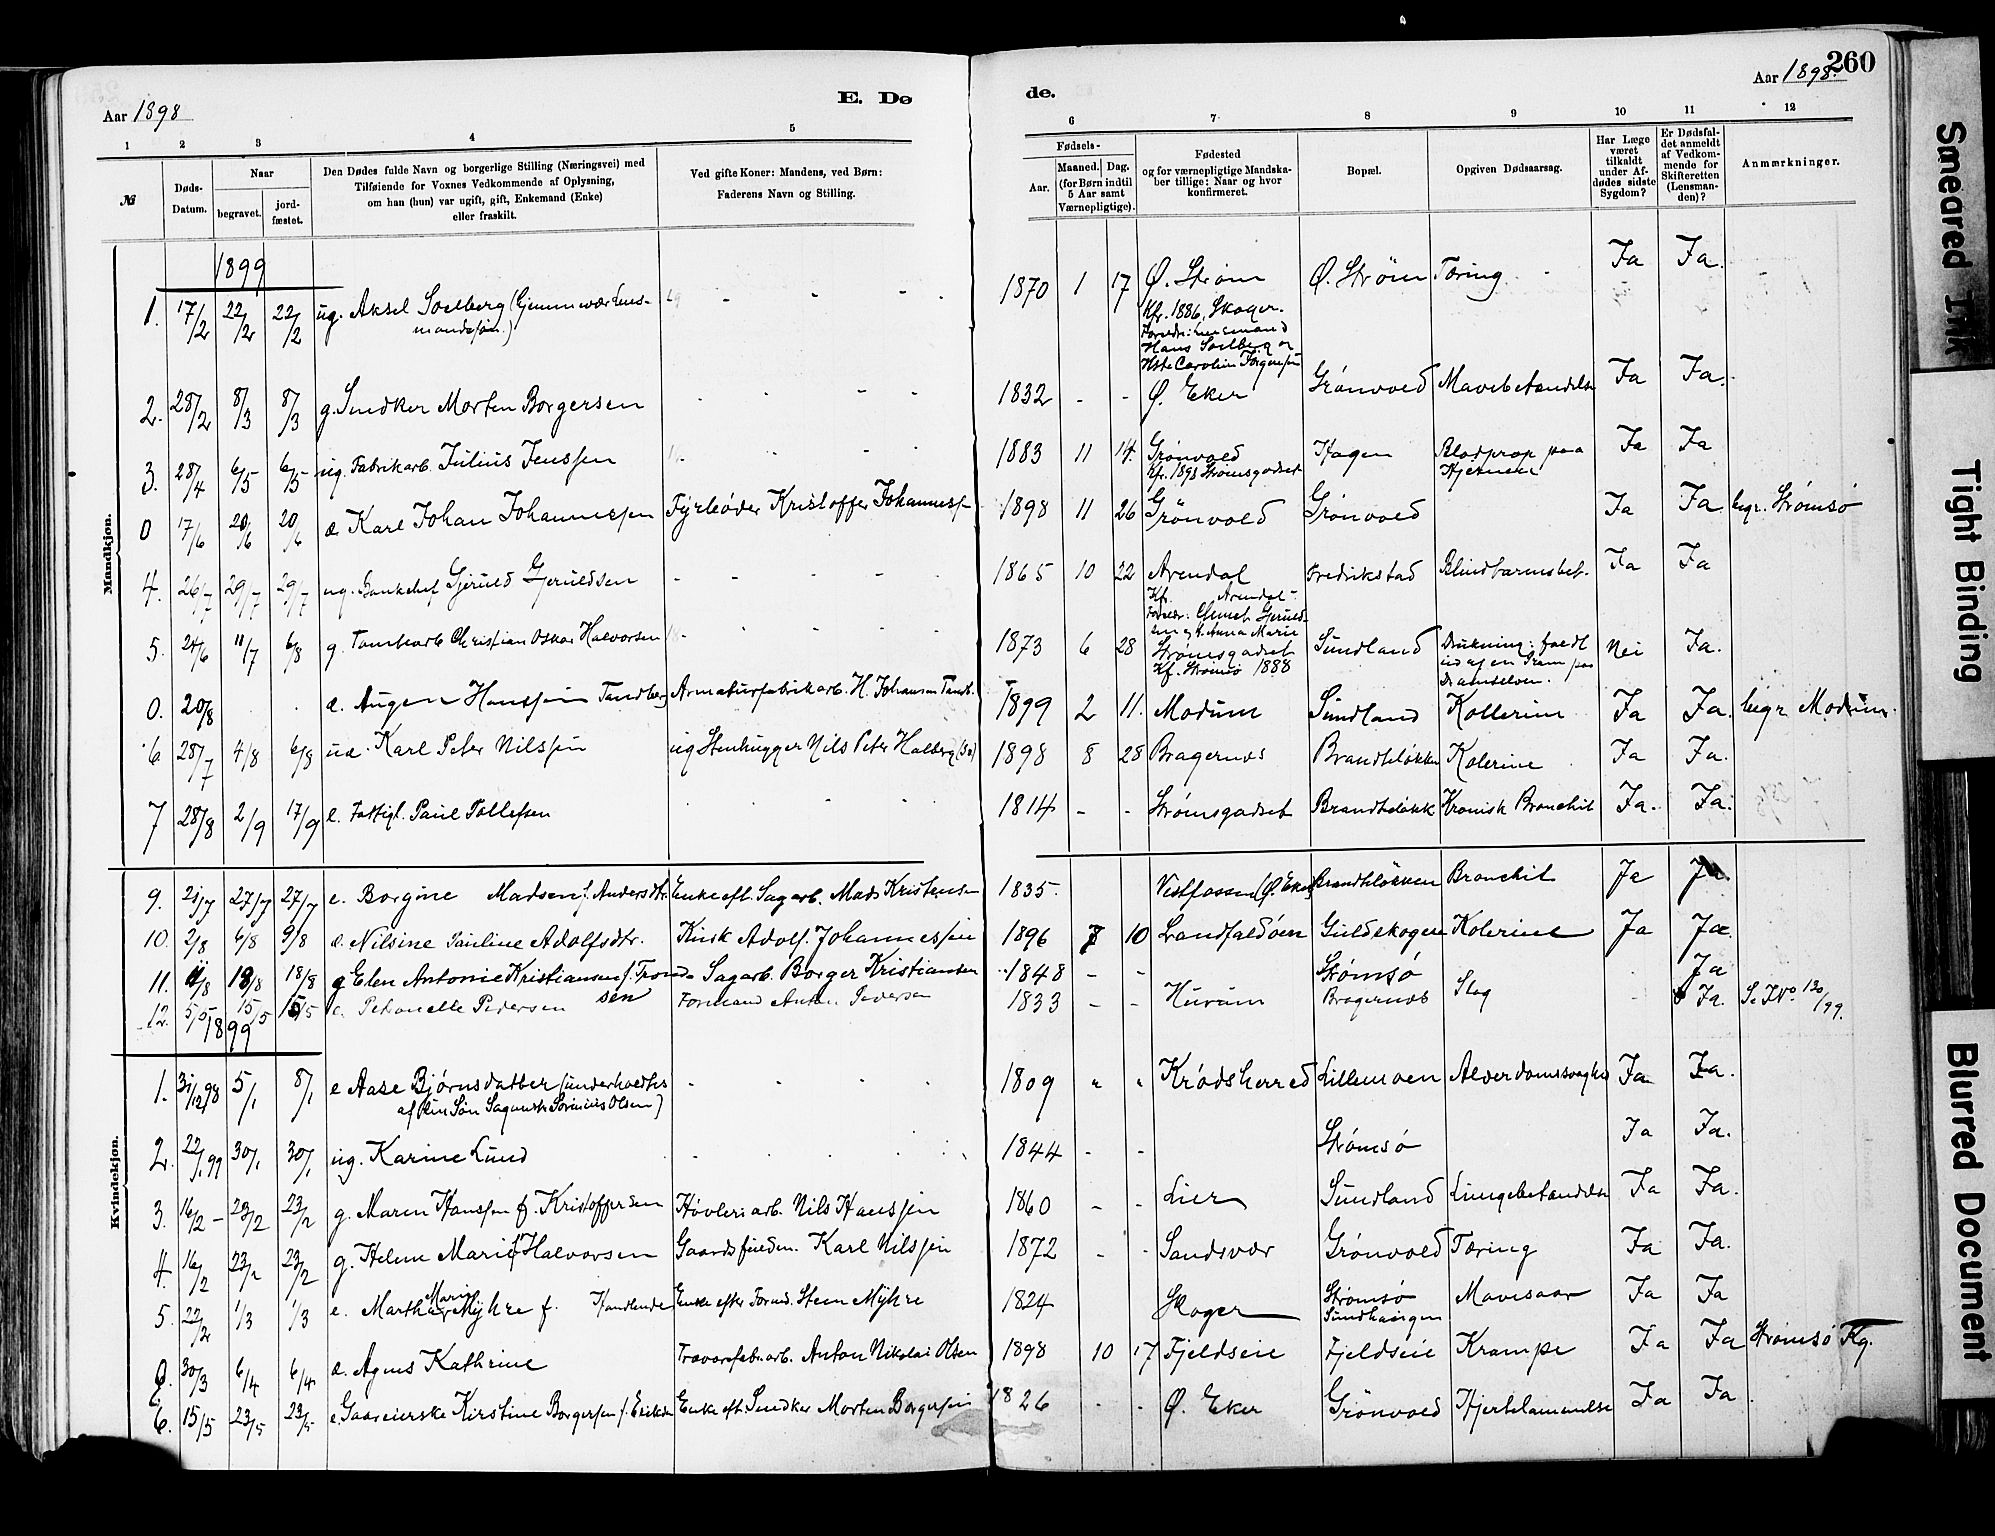 260
Aar 1898
E. Dø
de.
Aar 1898.
1 2 3 4 5 6 7 8 9 10 11 12
№
Døds-
Datum.
Naar
begravet.
jord-
fæstet.
Den Dødes fulde Navn og borgerlige Stilling (Næringsvei) med
Tilføiende for Voxnes Vedkommende af Oplysning,
om han (hun) var ugift, gift, Enkemand (Enke)
eller fraskilt.
Ved gifte Koner: Mandens, ved Børn:
Faderens Navn og Stilling.
Fødsels-
Aar.
Maaned. Dag.
(for Børn indtil
5 Aar samt
Værnepligtige).
Fødested
og for værnepligtige Mandska-
ber tillige: Naar og hvor
konfirmeret.
Bopæl.
Opgiven Dødsaarsag.
Har Læge
været
tilkaldt
under Af-
dødes sidste
Sygdom?
Er Dødsfal-
det anmeldt
af Vedkom-
mende for
Skifteretten
(Lensman-
den)?
Anmærkninger.
Mandkjøn.
1899
1. 17/2 22/2 22/2 ug. Aksel Solberg 1870 1 17 Ø. Strøm Ø. Strøm Tæring. Ja Ja.
Kfr. 1886, Skoger.
Hans Solberg
2. 28/2 8/3 8/3 g. Snedker Morten Borgersen 1832 - - Ø. Eker Grønvold Mavebetændelse Ja Ja.
3. 28/4 6/5 6/5 ug. Fabrikarb. Julius Jenssen 1883 11 14 Grønvold Hagen Blodprop paa Ja Ja
Kfr. 1898 Strømsgodset Hjernen
0 17/6 20/6 20/6 æ. Karl Johan Johannessen Fyrbøder Kristoffer Johanness. 1898 11 26 Grönvold Grönvold Ja Ja. begr. Strømsø
4. 26/7 29/7 29/7 ug. Bankchef Gjeruld Gjeruldsen 1865 10 22 Arendal Fredrikstad Blindtarmsbet. Ja Ja
Kfr. Arendal
Anna Marie
5. 24/6 11/7 6/8 g. Tomtearb. Christian Oskar Halvorsen 1873 6 28 Strømsgodset Sundland Drukning: faldt Nei Ja.
Kf. Strømsø 1888 ud af en Pram paa
Dramselven.
0. 20/8 æ. Augen Hanssen Tandberg Armaturfabrikarb. H. Johansen Tandb. 1899 2 11. Modum Sundland Kollerine Ja Ja. begr Modum.
6 28/7 4/8 6/8 uæ. Karl Peter Nilssen ug Stenhugger Nils Peter Halberg 1898 8 28 Bragernæs Brandtløkken Kolerine Ja Ja.
7 28/8 2/9 17/9 e. Fattigl. Paul Tollefsen 1814 - - Strømsgodset Brandtløkk Kronisk Bronchit Ja. Ja.
9. 21/7 27/7 27/7 e. Borgine Madsen f. Andersdtr. Enke eft. Sagarb. Mads Kristensen 1835. Vestfossen (Ø. Eker) Brandtløkken Bronchit Ja Ja
10. 2/8 6/8 9/8 æ. Nilsine Pauline Adolfsdtr. Kusk Adolf Johannessen 1896 7 10 Landfaldøen Guldskogen Kolerine Ja Ja.
11. 11/8 18/8 18/8 g Elen Antonie Kristiansen f. Trond- Sagarb. Borger Kristiansen 1848 - - Strømsø Ja
sen
12. 5/5 15/5 15/5 e. Petronelle Pedersen Formand Anton Pedersen 1833 - - Hurum Bragernæs Slag Ja. S. J. No. 130/99.
Kvindekjøn.
1899
1. 31/12 98 5/1 8/1 e Aase Bjørnsdatter (underholdtes 1809 Krødsherred Lillemoen Alderdomssvaghed Ja Ja.
af sin Søn Sagmester Sørinius Olsen)
2. 22/1 99 30/1 30/1 ug. Karine Lund 1844 - - Strømsø Ja Ja.
3. 16/2 23/2 23/2 g. Maren Hanssen f. Kristoffersen Høvleriarb. Nils Hanssen 1860 - - Lier Sundland Lungebetændelse Ja Ja.
4. 16/2 23/2 23/2 g. Helene Marie Halvorsen Gaardsfuldm. Karl Nilssen 1872 - - Sandsvær Grønvold Tæring Ja Ja.
5. 22/2 1/3 1/3 e. Marthe Marie Myhre f. Enke efter Formd. Steen Myhre 1824 Skoger Strømsø Mavesaar Ja Ja
Sundhaugen
0. 30/3 6/4 6/4 æ. Agnes Kathrine Trævarefabr.arb. Anton Nikolai Olsen 1898 10 17 Fjeldseie Fjeldseie Krampe Ja Ja Strømsø Kg.
6. 15/5 23/5 23/5 e. Gaardeierske Kirstine Borgersen f. Eriksen Enke eft. Snedker Morten Borgersen 1826 - - Ø. Eker Grønvold Hjertelammelse Ja Ja
Smeared Ink
Tight Binding
Blurred Document